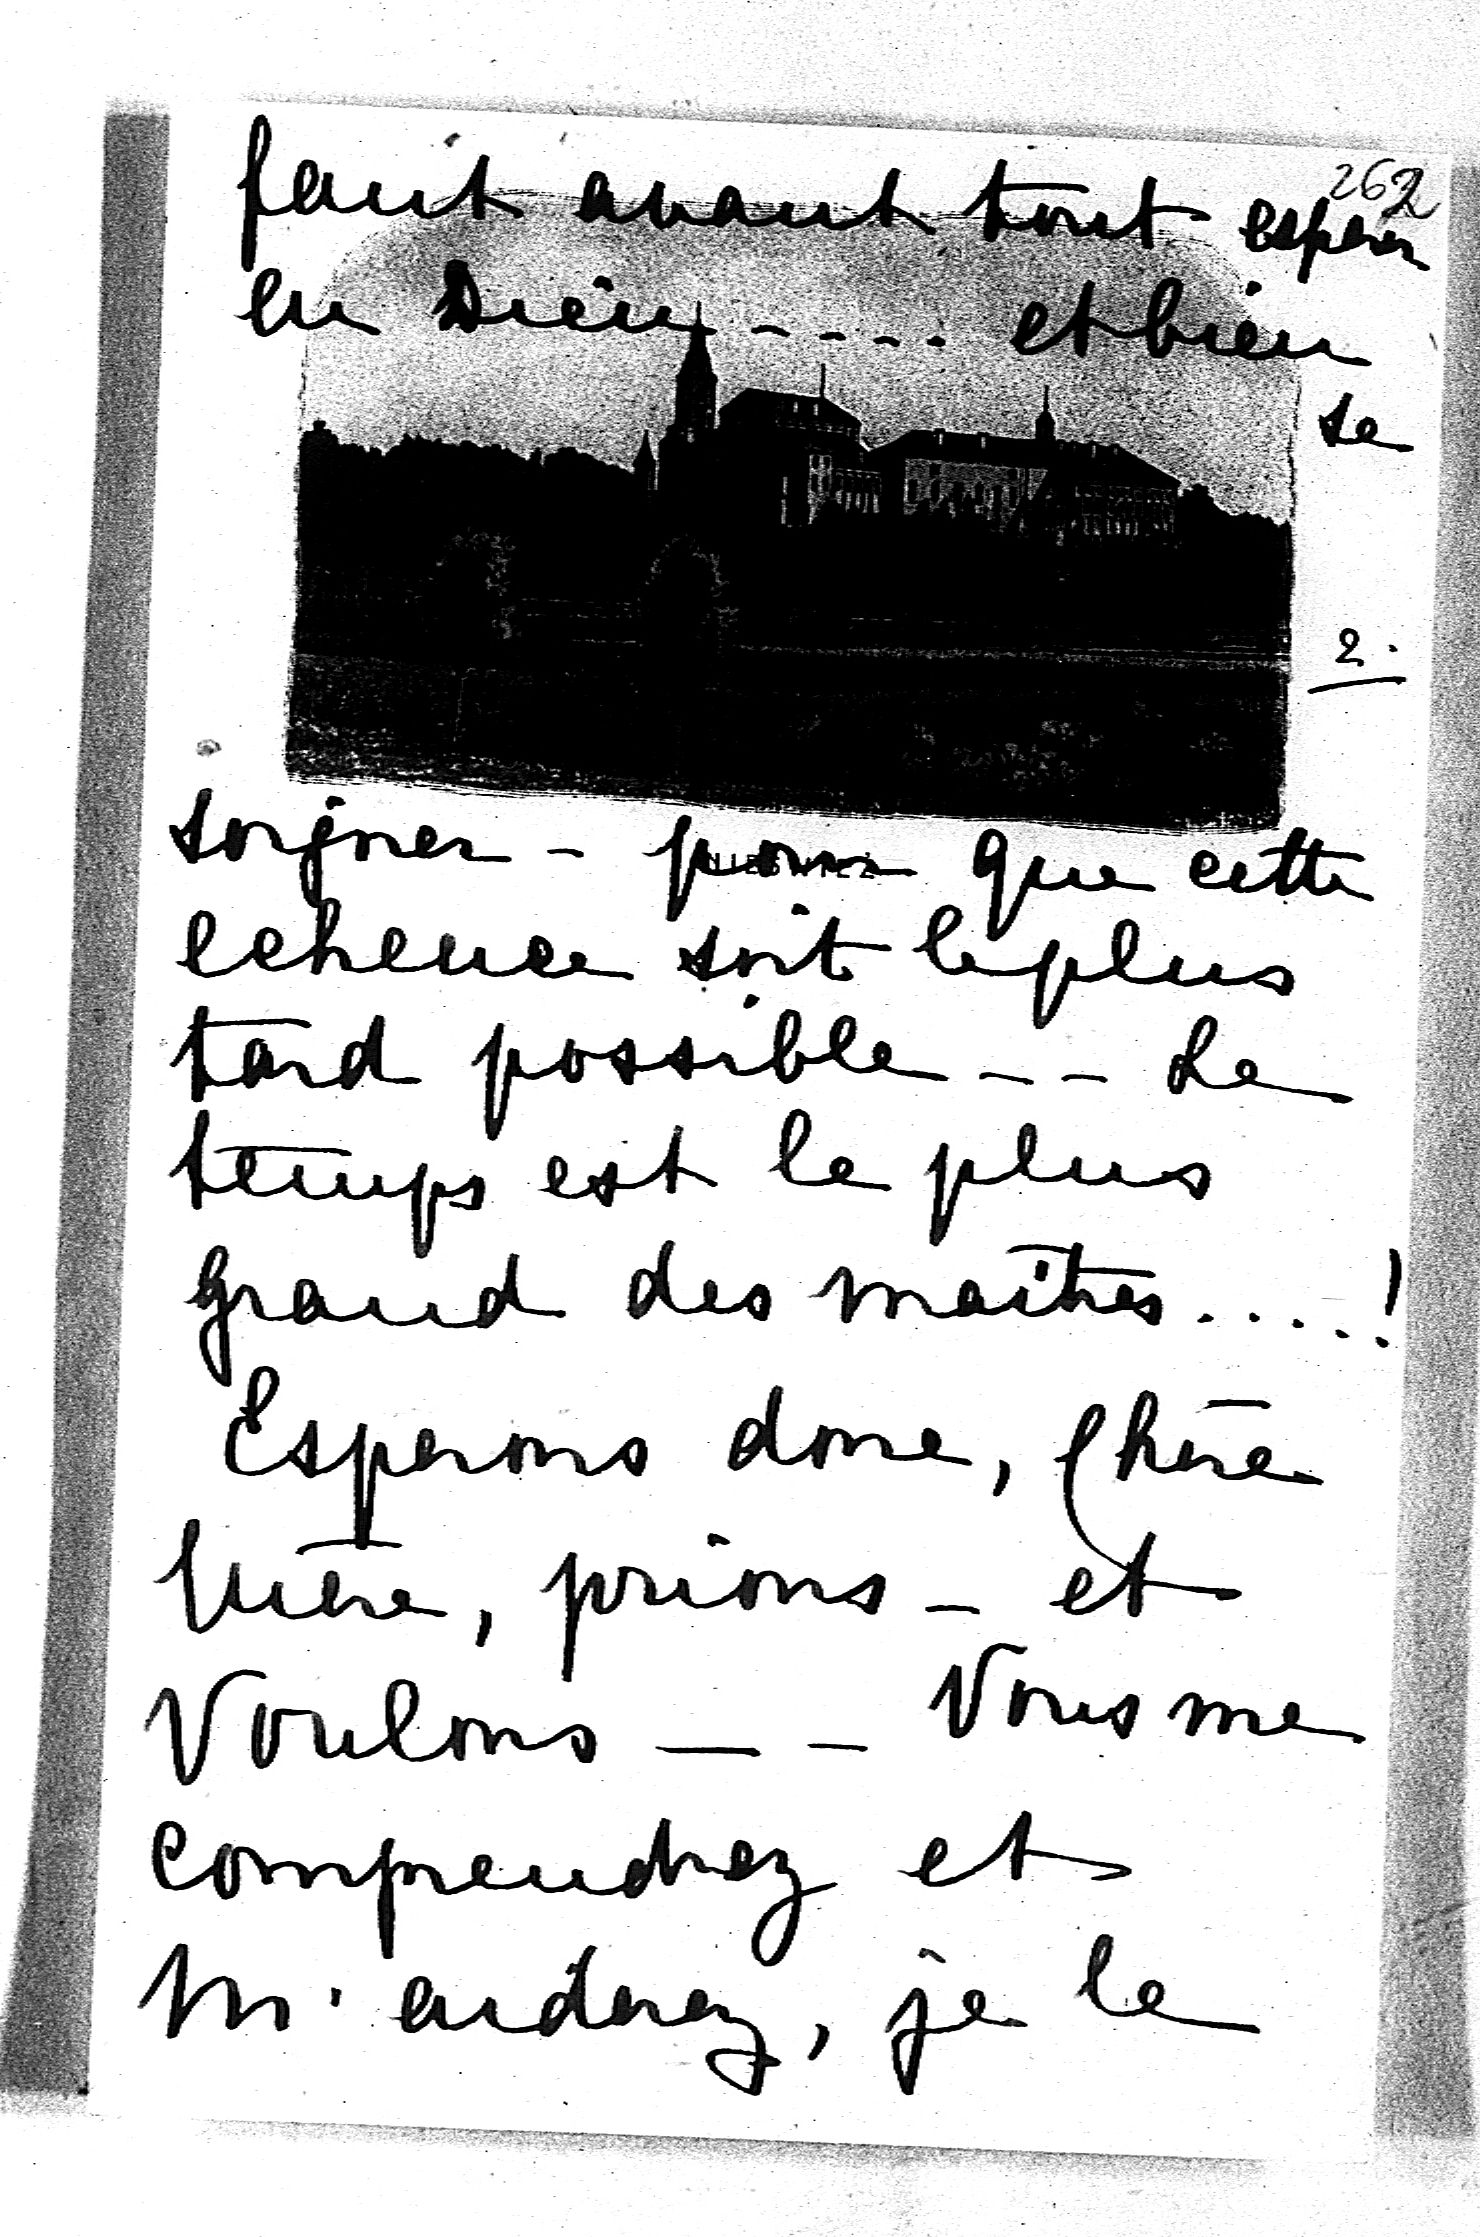 262
faut avant tout esperer
en Dieu - - - - - et bien
se
2.
soigner - pour que cette
NIEŚWIEŻ
echeance soit le plus
tard possible - - Le
temps est le plus
grand des maîtres.....!
Esperons donc, Chère
Mère, prions - et
Voulons - - Vous me
comprendrez et
m'aiderez, je le